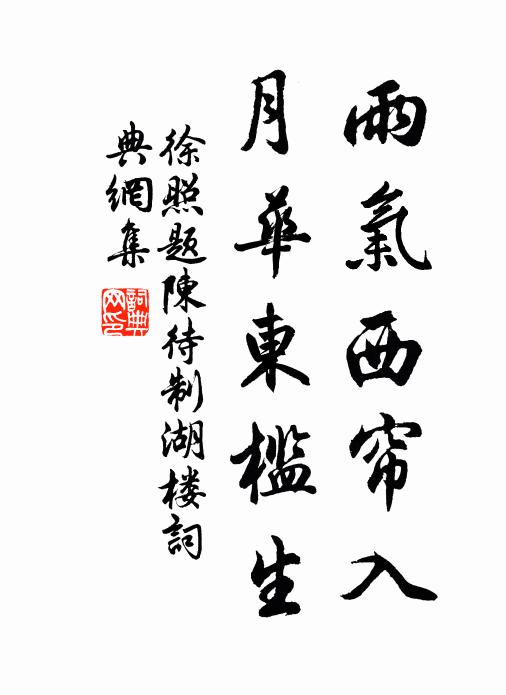 雨氣西帘入
月華東檻生
徐照題陳待制湖楼詞
典網集
詞典
网印